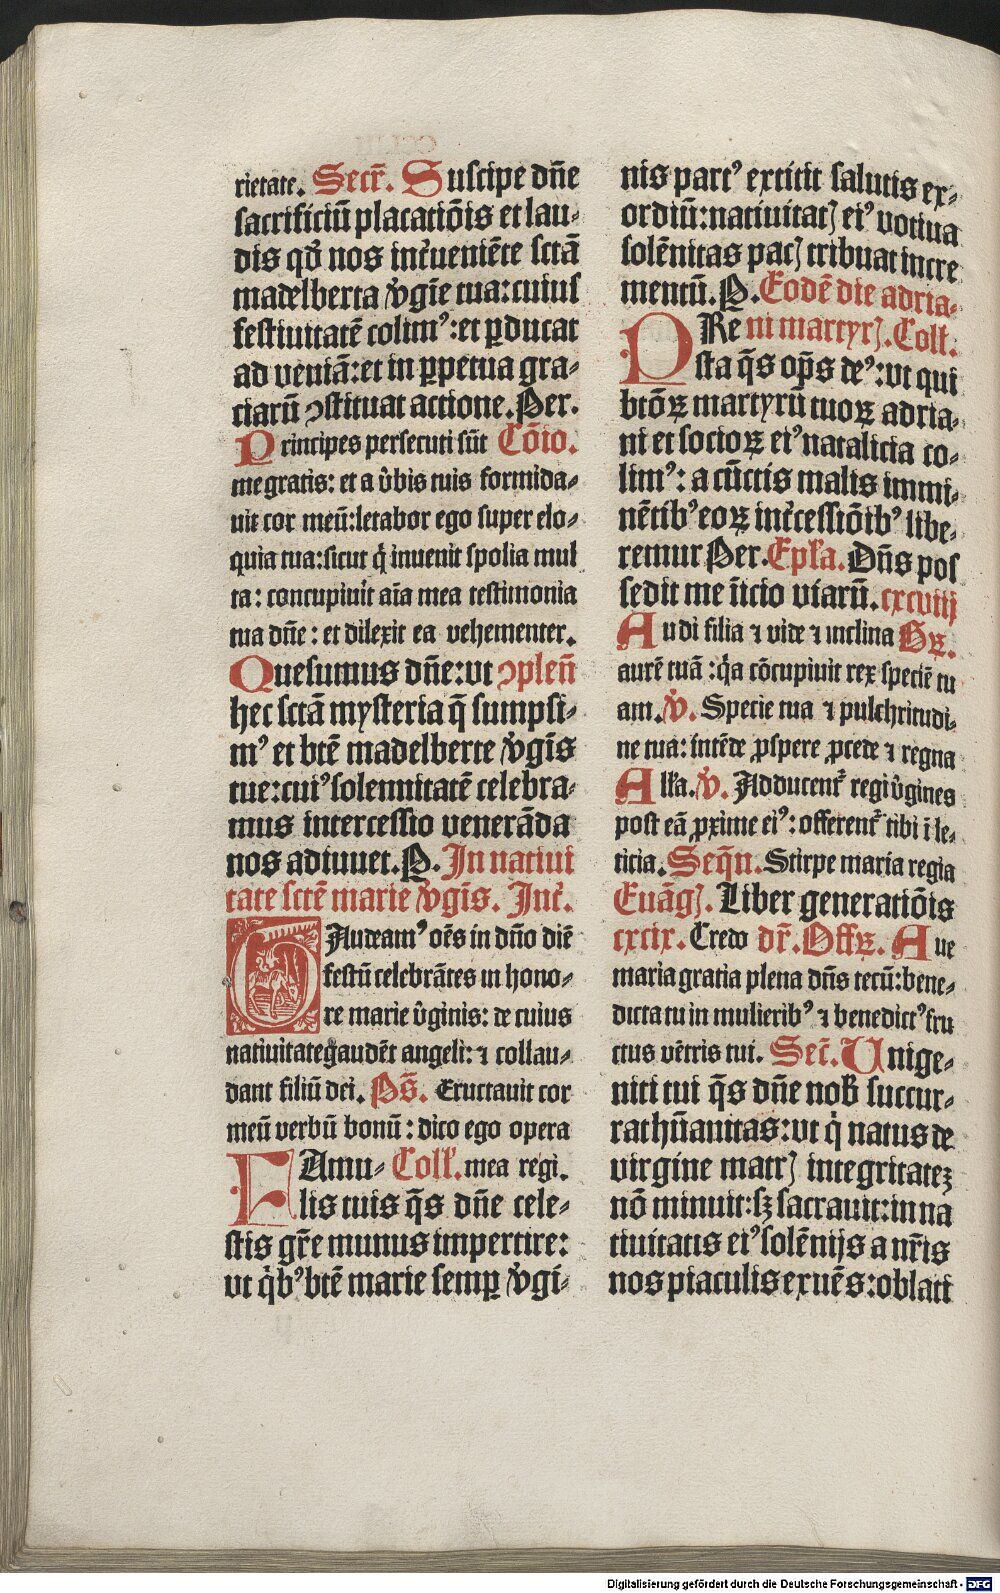 rietate. Secr̃. Suscipe dñe
sacrificiũ placatiõis et lau-
dis qđ nos int̾ueniẽte sctã
madelberta v̾gĩe tua: cuius
festiuitatẽ colimꝰ: et ꝑducat
ad veniã: et in ꝑpetua gra-
ciarũ ꝯstituat actione. Per.
Principes persecuti sũt Cõio.
me gratis: et a v̾bis tuis formida-
uit cor meũ: letabor ego super elo-
quia tua: sicut q̇ inuenit spolia mul
ta: concupiuit aĩa mea testimonia
tua dñe: et dilexit ea vehementer.
Quesumus dñe: vt ꝯpleñ
hec sctã mysteria q̃ sumpsi-
mꝰ et btẽ madelberte v̾gĩs
tue: cuiꝰ solennitatẽ celebra-
mus intercessio venerãda
nos adiuuet. P. In natiui
tate sctẽ marie v̾gĩs. Int̾.
GAudeamꝰ oẽs in dño diẽ
festũ celebrãtes in hono-
re marie v̾ginis: de cuius
natiuitate gaudẽt angeli: ⁊ collau-
dant filiũ dei. Ps̃. Eructauit cor
meũ verbũ bonũ: dico ego opera
FAmu- Coll̃. mea regi.
lis tuis q̃s dñe cele-
stis gr̃e munus impertire:
vt q̇bꝰ btẽ marie semꝑ v̾gi-
nis partꝰ extitit salutis ex-
ordiũ: natiuitatꝭ eiꝰ votiua
solẽnitas pacꝭ tribuat incre
mentũ. P. Eodẽ die adria-
PRe ni martyrꝭ. Coll̃.
sta q̃s ops̃ deꝰ: vt qui
btõꝝ martyrũ tuoꝝ adria-
ni et socioꝝ eiꝰ natalicia co-
limꝰ: a cũctis malis immi-
nẽtibꝰ eoꝝ int̾cessiõibꝰ libe-
remur Per. Epl̃a. Dñs pos
sedit me ĩicio viarũ. cxcviij
Audi filia ⁊ vide ⁊ inclina Gꝝ.
aurẽ tuã: q̇a cõcupiuit rex speciẽ tu
am. V̾. Specie tua ⁊ pulchritudi-
ne tua: intẽde ꝓspere ꝓcede ⁊ regna
All̃a. V̾. Adducent̾ regi v̾gines
post eã ꝓxime eiꝰ: offerent̾ tibi ĩ le-
ticia. Seq̃n. Stirpe maria regia
Euãgꝭ. Liber generatiõis
cxcix. Credo dr̃. Offꝝ. Aue
maria gratia plena dñs tecũ: bene-
dicta tu in mulieribꝰ ⁊ benedictꝰ fru
ctus vẽtris tui. Sec̃. Unige-
niti tui q̃s dñe nob̃ succur-
rat hũanitas: vt q̇ natus de
virgine matrꝭ integritateꝫ
nõ minuit: sꝫ sacrauit: in na
tiuitatis eiꝰ solẽnijs a nr̃is
nos piaculis exuẽs: oblati
Digitalisierung gefördert durch die Deutsche Forschungsgemeinschaft - DFG